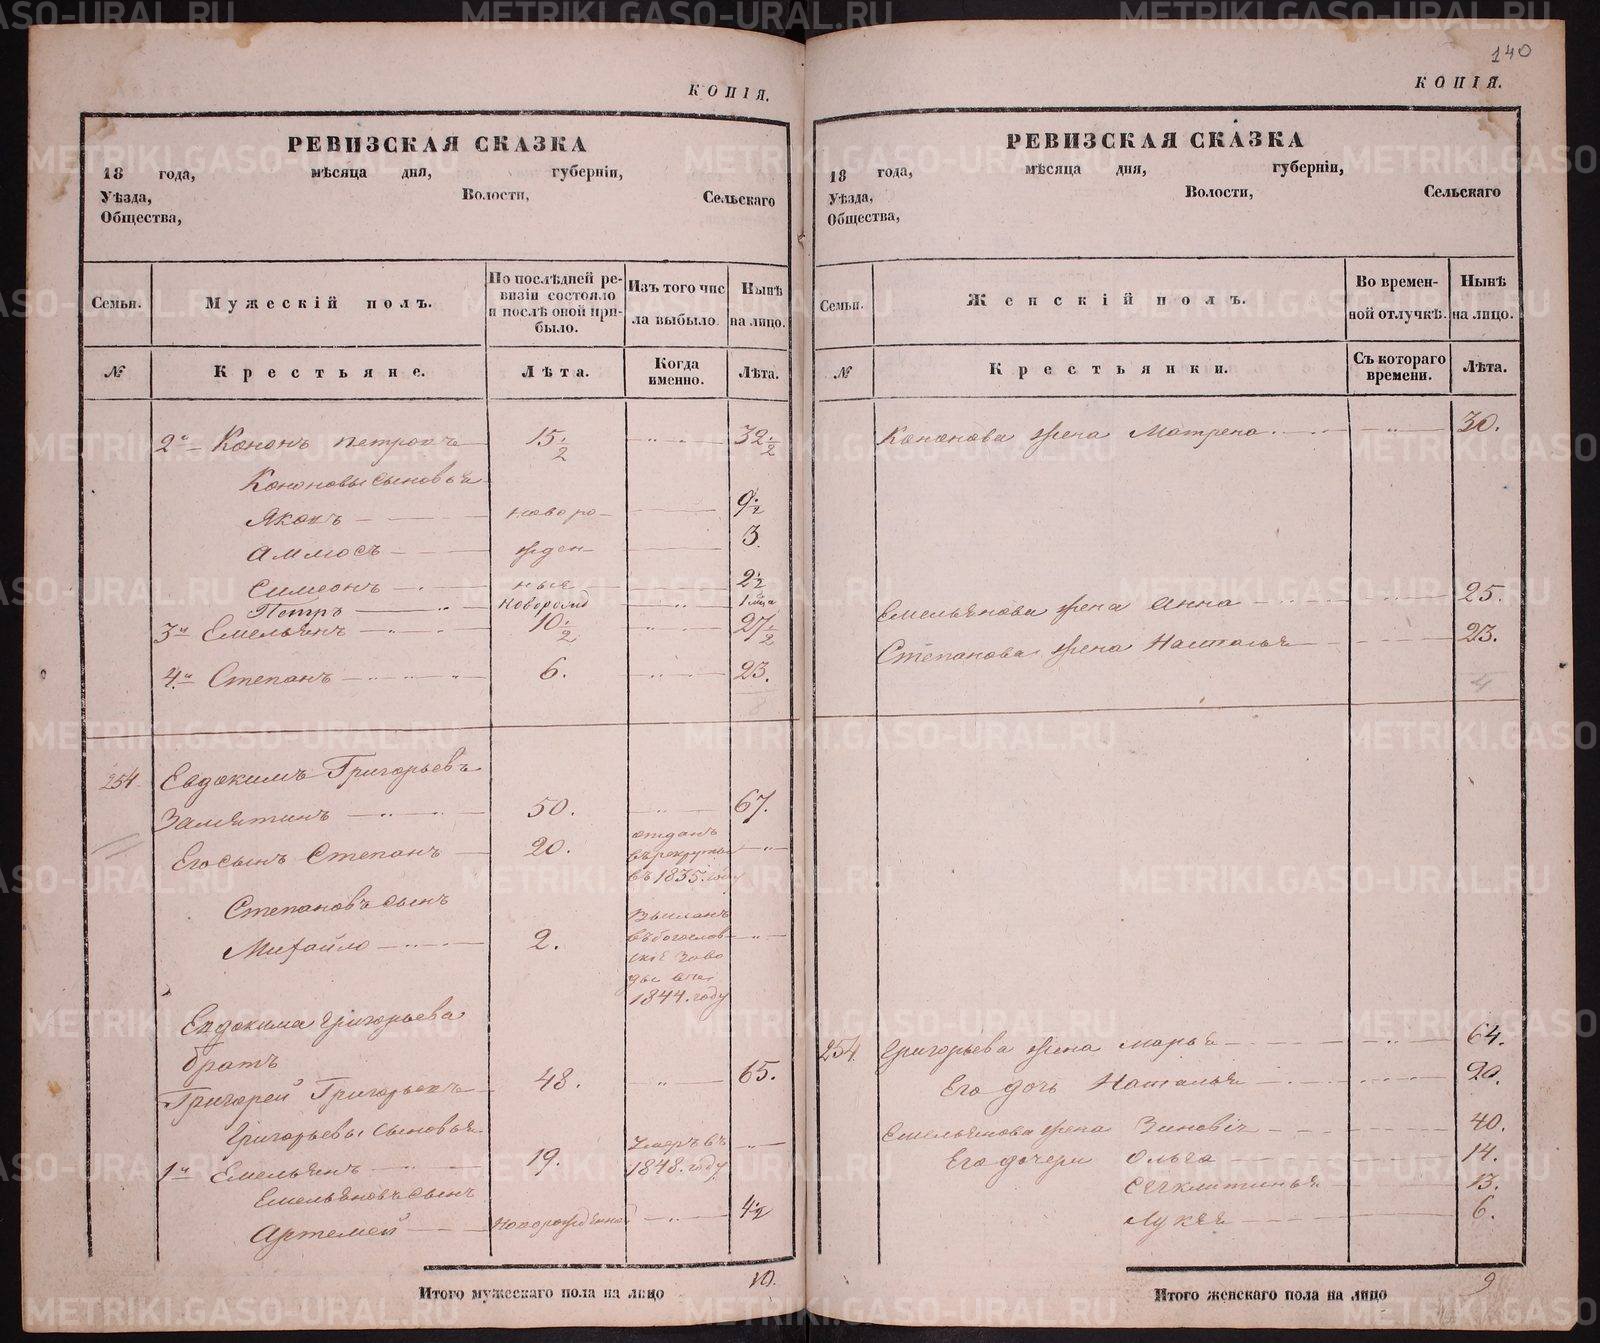 140
КОПІЯ.
РЕВИЗСКАЯ СКАЗКА
18 года, мѣсяца дня, губерніи,
Уѣзда, Волости, Сельскаго
Общества,
Семьи. Мужескій полъ. По послѣдней ревизіи состояло и послѣ оной прибыло. Изъ того числа выбыло. Нынѣ на лицо.
№ Крестьяне. Лѣта. Когда именно. Лѣта.
2й Кононъ Петровъ 15 1/2 32 1/2
Кононовы сыновья
Яковъ новоро- 9 1/2
Аммосъ жден- 3
Симеонъ ные 2 1/2
Петръ новорожд 1 м-ца
3й Емельянъ 10 1/2 27 1/2
4й Степанъ 6. 23.
254 Евдокимъ Григорьевъ
Замятинъ 50. 67.
Его сынъ Степанъ 20. отданъ въ рекруты въ 1835. году
Степановъ сынъ
Михайло 2. Высланъ въ богословскіе заводы въ 1844. году
Евдокима Григорьева
братъ
Григорей Григорьевъ 48. 65.
Григорьевы сыновья
1й Емельянъ 19. Умеръ въ 1848. году
Емельяновъ сынъ
Артемей новорожденной 4 1/2
Итого мужескаго пола на лицо 10.
КОПІЯ.
РЕВИЗСКАЯ СКАЗКА
18 года, мѣсяца дня, губерніи,
Уѣзда, Волости, Сельскаго
Общества,
Семьи. Женскій полъ. Во временной отлучкѣ. Нынѣ на лицо.
№ Крестьянки. Съ котораго времени. Лѣта.
Кононова жена Матрена 30.
Емельянова жена Анна 25.
Степанова жена Наталья 23.
4
254 Григорьева жена Марья 64.
Его дочь Наталья 20.
Емельянова жена Зиновія 40.
Его дочери Ольга 14.
Секлитинья 13.
Лукея 6.
Итого женскаго пола на лицо 9
METRIKI.GASO-URAL.RU